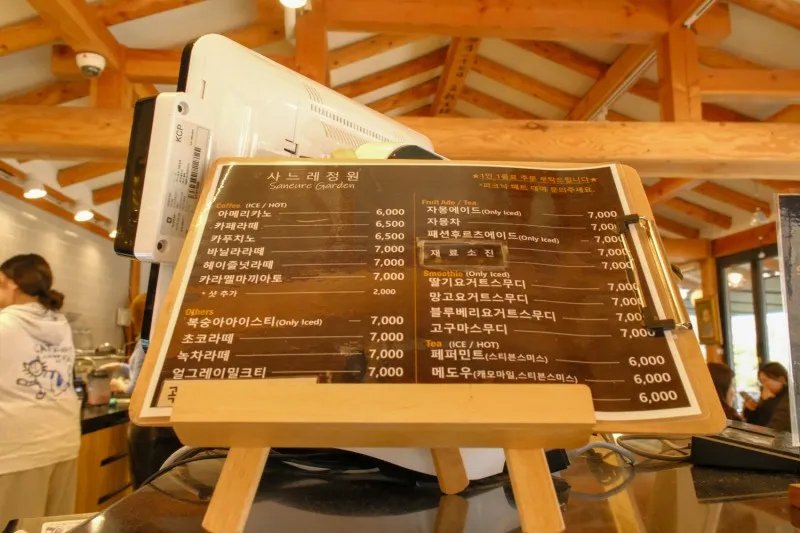 KCP
사느레정원
Saneure Garden
★1인 1음료 주문 부탁드립니다★
Coffee (ICE / HOT)
아메리카노 6,000
카페라떼 6,500
카푸치노 6,500
바닐라라떼 7,000
헤이즐넛라떼 7,000
카라멜마끼아또 7,000
* 샷 추가 2,000
Others
복숭아아이스티(Only Iced) 7,000
초코라떼 7,000
녹차라떼 7,000
얼그레이밀크티 7,000
Fruit Ade / Tea
자몽에이드(Only Iced) 7,000
자몽차 7,000
패션후르츠에이드(Only Iced) 7,000
재료소진 7,000
Smoothie (Only Iced)
딸기요거트스무디 7,000
망고요거트스무디 7,000
블루베리요거트스무디 7,000
고구마스무디 7,000
Tea (ICE / HOT)
페퍼민트(스티븐스미스) 6,000
메도우(캐모마일,스티븐스미스) 6,000
6,000